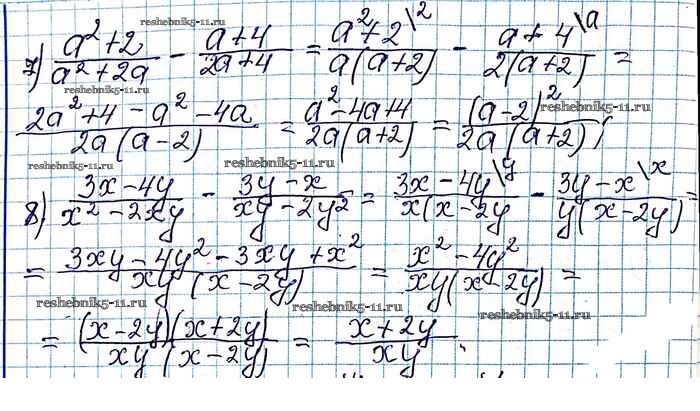 reshebnik5-11.ru
7) (a²+2)/(a²+2a) - (a+4)/(2a+4) = (a²+2\2)/(a(a+2)) - (a+4\a)/(2(a+2)) =
reshebnik5-11.ru
(2a²+4-a²-4a)/(2a(a-2)) = (a²-4a+4)/(2a(a+2)) = (a-2)²/(2a(a+2));
reshebnik5-11.ru
reshebnik5-11.ru reshebnik5-11.ru
8) (3x-4y)/(x²-2xy) - (3y-x)/(xy-2y²) = (3x-4y\y)/(x(x-2y) - (3y-x\x)/(y(x-2y)) =
= (3xy-4y²-3xy+x²)/(xy(x-2y)) = (x²-4y²)/(xy(x-2y)) =
reshebnik5-11.ru reshebnik5-11.ru reshebnik5-11.ru
= ((x-2y)(x+2y))/(xy(x-2y)) = (x+2y)/(xy).